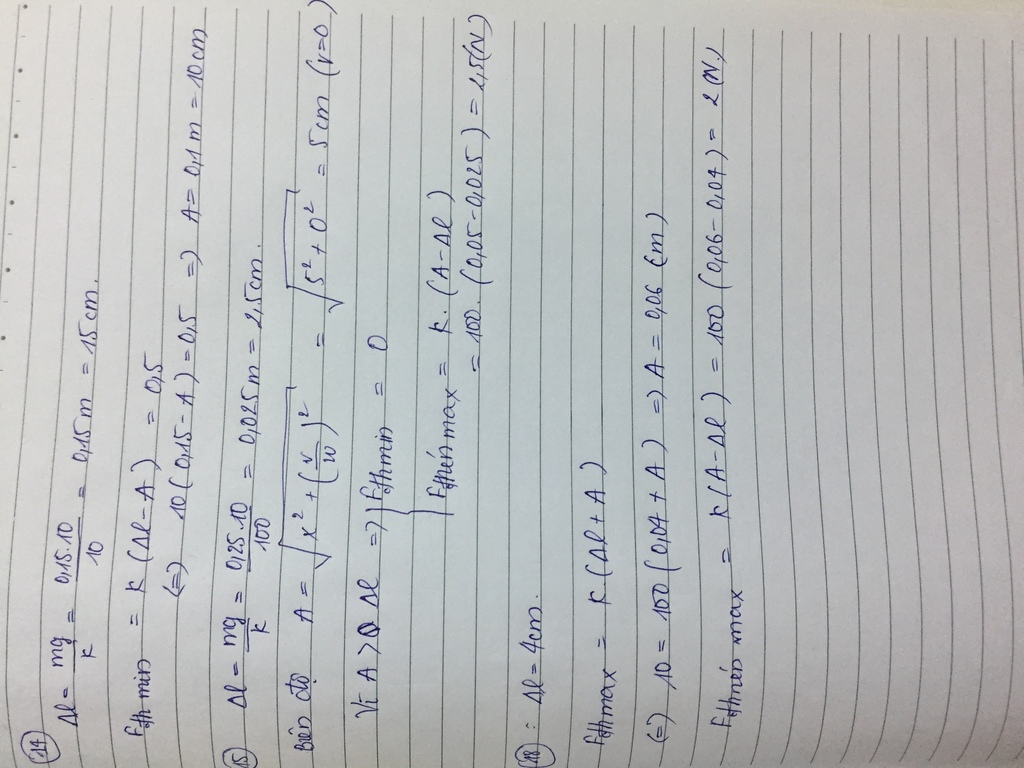 14
Δl = mg/k = 0,15.10/10 = 0,15m = 15cm.
Fđh min = k (Δl - A) = 0,5
(=) 10 (0,15 - A) = 0,5 => A = 0,1m = 10cm
15) Δl = mg/k = 0,25.10/100 = 0,025m = 2,5cm.
Biên độ A = √(x² + (v/w)²) = √(5² + 0²) = 5cm (v=0)
Vì A > Δl => { Fđh min = 0
Fđh nén max = k. (A - Δl)
= 100. (0,05 - 0,025) = 2,5 (N)
18 : Δl = 4cm.
Fđh max = k (Δl + A)
(=) 10 = 100 (0,04 + A) => A = 0,06 (m)
Fđh nén max = k (A - Δl) = 100 (0,06 - 0,04) = 2 (N)